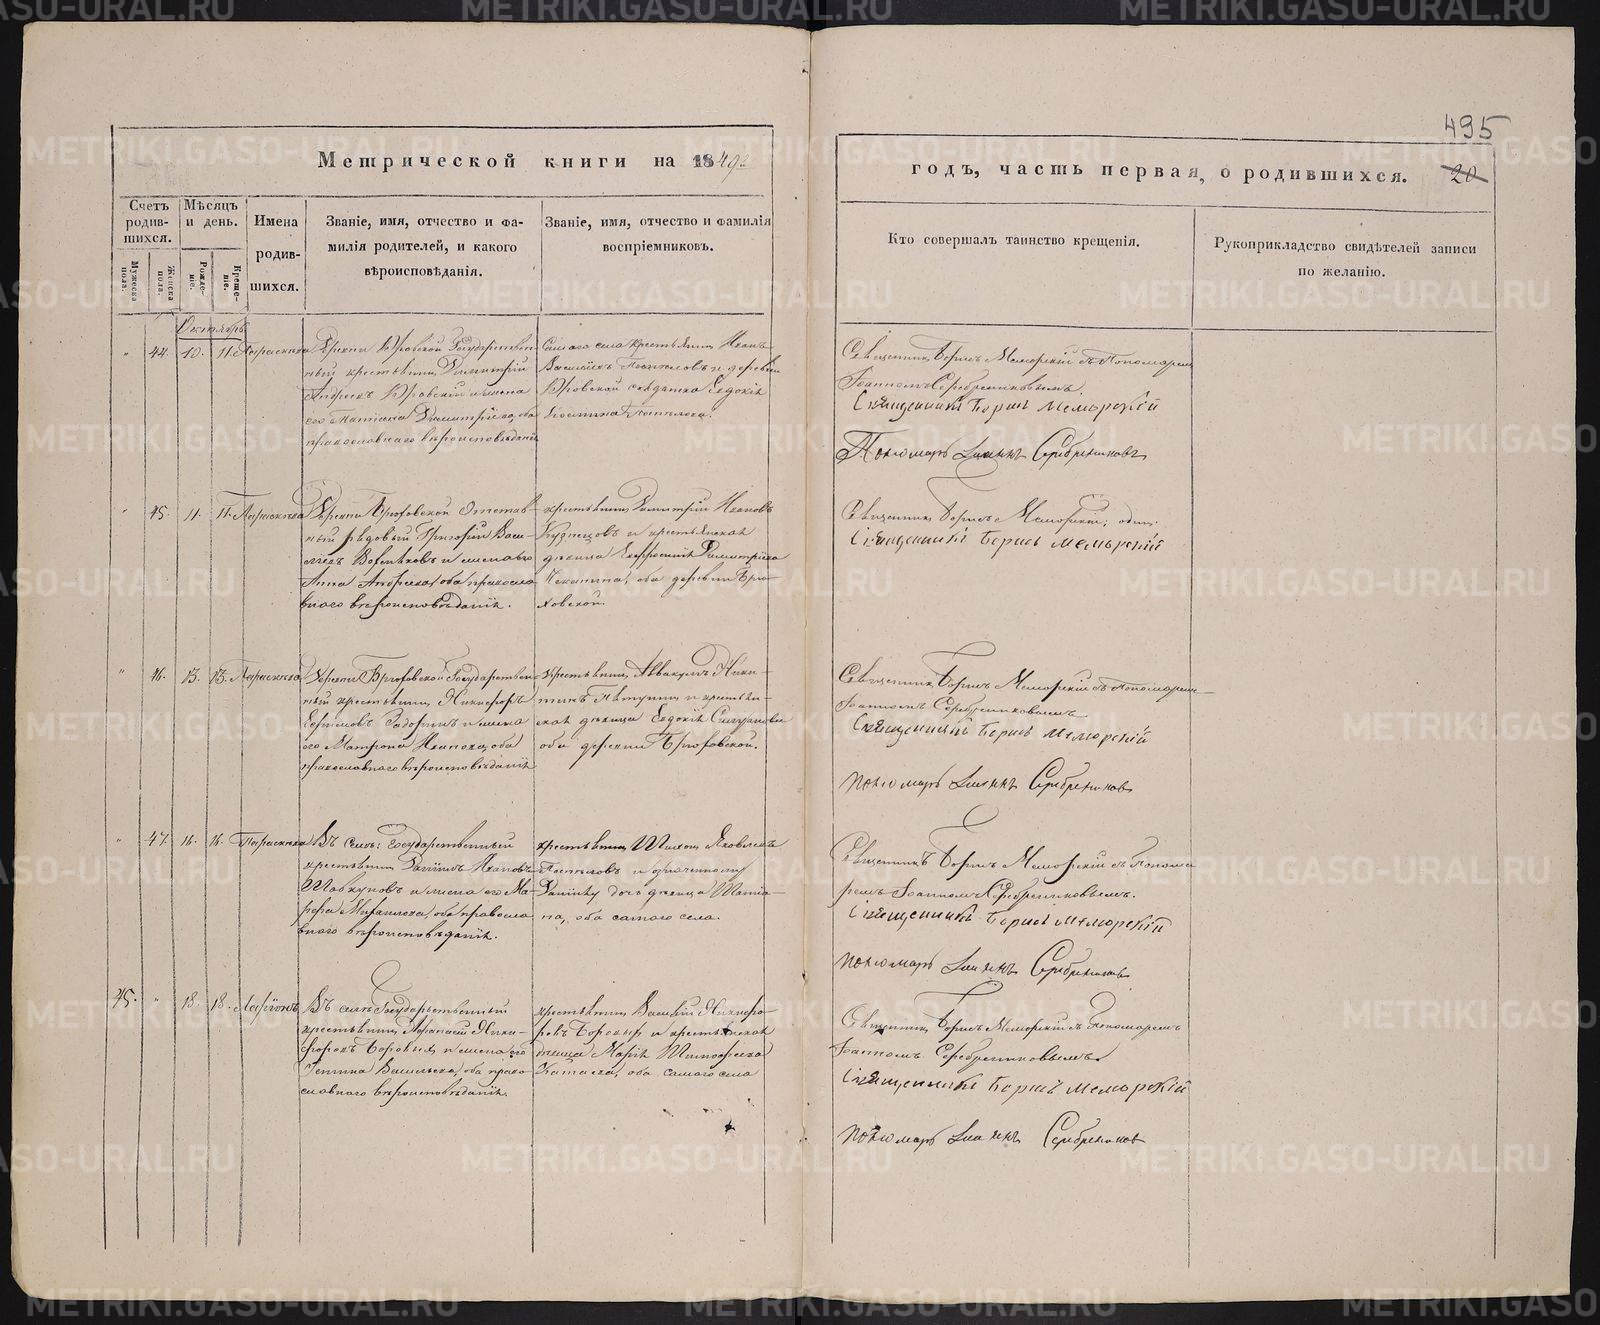 495
Метрической книги на 1849й
годъ, часть первая, о родившихся.
20
Счетъ родив-шихся.
Мужеска пола.
Женска пола.
Мѣсяцъ и день.
Рожде-ніе.
Креще-ніе.
Имена
родив-
шихся.
Званіе, имя, отчество и фа-
милія родителей, и какого
вѣроисповѣданія.
Званіе, имя, отчество и фамилія
воспріемниковъ.
Кто совершалъ таинство крещенія.
Рукоприкладство свидѣтелей записи
по желанію.
Октябрь
" 44. 10. 11. Параскева
Деревни Юровской Государствен-
ный крестьянинъ Димитрій
Андреевъ Юровскій и жена
его Татіана Димитріева, оба
православнаго вѣроисповѣданія
Самаго села крестьянинъ Иванъ
Васильевъ и деревни
Юровской солдатка Евдокія
Священникъ Борисъ Меморскій съ Пономаремъ
Іоанномъ Серебренниковымъ
Священникъ Борисъ Меморскій
Пономарь Іоаннъ Серебрениковъ
" 45. 11. 11. Параскева
Деревни Брюховской Отстав-
ный рядовый Григорій Васи-
льевъ и жена его
Анна Андреева, оба правосла-
внаго вѣроисповѣданія.
крестьянинъ Димитрій Ивановъ
Кузнецовъ и крестьянская
дѣвица Евфросинія Димитріева
оба деревни Брю-
ховской.
Священникъ Борисъ Меморскій; одинъ.
Священникъ Борисъ Меморскій
" 46. 13. 13. Параскева
Деревни Брюховской Государствен-
ный крестьянинъ Никифоръ
Ефимовъ и жена
его Матрона Иванова, оба
православнаго вѣроисповѣданія
крестьянинъ Аввакумъ Ники-
тинъ и крестьян-
ская дѣвица Евдокія
оба деревни Брюховской.
Священникъ Борисъ Меморскій съ Пономаремъ
Іоанномъ Серебренниковымъ
Священникъ Борисъ Меморскій
Пономарь Іоаннъ Серебрениковъ
" 47. 16. 16. Параскева
Въ селѣ: Государственный
крестьянинъ Даніилъ Ивановъ
Шавкуновъ и жена его Ма-
рфа Михайлова, оба правосла-
внаго вѣроисповѣданія.
крестьянинъ Яковлевъ
Поспѣловъ и
дочь дѣвица Татіа-
на, оба самаго села.
Священникъ Борисъ Меморскій съ Понома
ремъ Іоанномъ Серебренниковымъ.
Священникъ Борисъ Меморскій
Пономарь Іоаннъ Серебрениковъ
45. " 18. 18. Ларіонъ
Въ селѣ Государственный
крестьянинъ Афанасій Ники-
форовъ Боровыхъ и жена его
Васильева, оба право-
славнаго вѣроисповѣданія.
крестьянинъ Василій Никифо-
ровъ Боровыхъ и крестьянская
Марія Тимофеева
оба самаго села
Священникъ Борисъ Меморскій съ Пономаремъ
Іоанномъ Серебренниковымъ
Священникъ Борисъ Меморскій
Пономарь Іоаннъ Серебрениковъ
METRIKI.GASO-URAL.RU